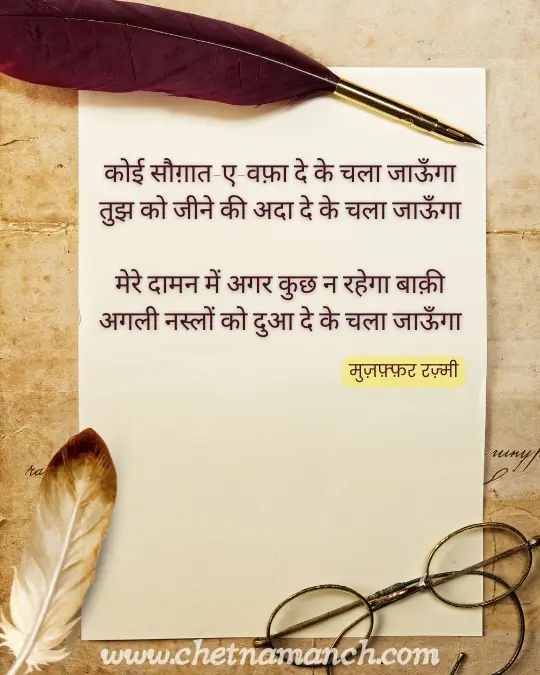 कोई सौग़ात-ए-वफ़ा दे के चला जाऊँगा
तुझ को जीने की अदा दे के चला जाऊँगा
मेरे दामन में अगर कुछ न रहेगा बाक़ी
अगली नस्लों को दुआ दे के चला जाऊँगा
मुज़फ़्फ़र रज़्मी
www.chetnamanch.com